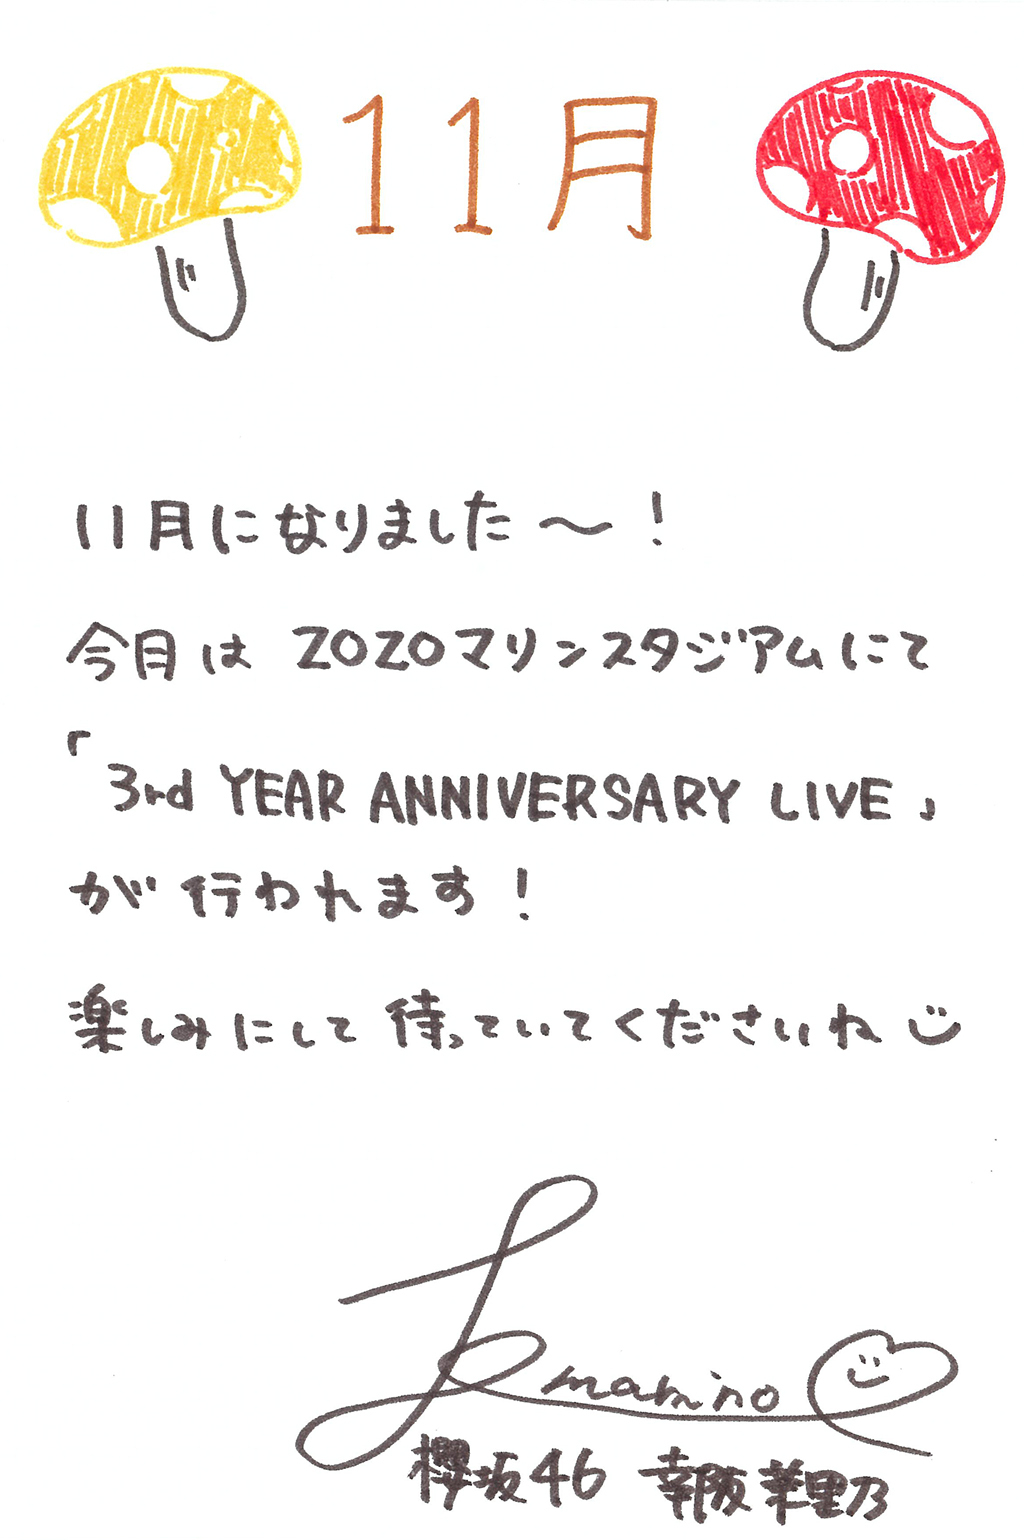 11月
11月になりました〜!
今月は ZOZOマリンスタジアムにて
「3rd YEAR ANNIVERSARY LIVE」
が行われます!
楽しみにして待っていてくださいね
marino
櫻坂46 幸阪茉里乃